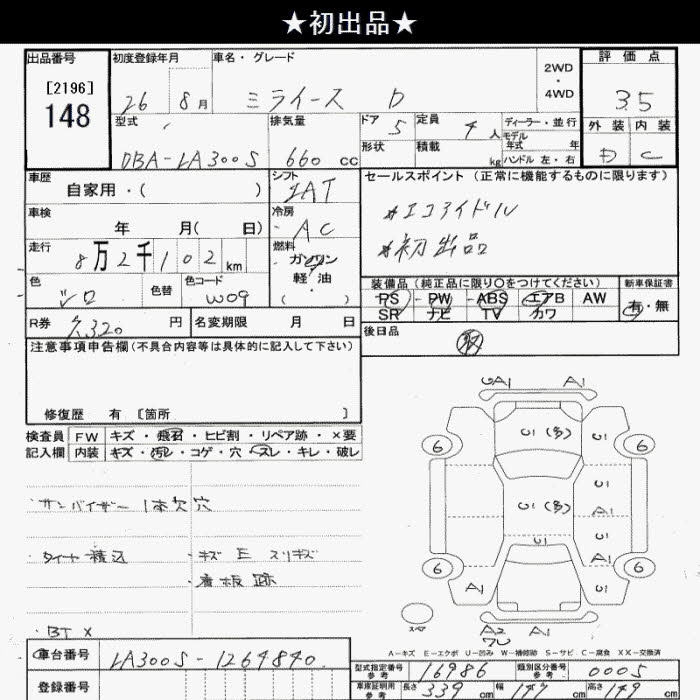 ★初出品★
出品番号
[2196]
148
初度登録年月
26 8月
車名・グレード
ミライース D
2WD
・
4WD
評価点
3.5
外装 内装
D C
型式
DBA-LA300S
排気量
660 cc
ドア 5
形状
定員 4人
積載 kg
ディーラー・並行
モデル年式 年
ハンドル 左・右
車歴
自家用・( )
シフト
IAT
車検
年 月( 日)
冷房
AC
走行
8万2千102km
燃料
ガソリン
軽・油
・( )
色
シロ
色替
色コード
W09
R券
円
名変期限 月 日
セールスポイント(正常に機能するものに限ります)
*エコアイドル
*初出品
装備品(純正品に限り○をつけてください)
PS・PW・ABS・エアB AW
SR ナビ TV カワ
新車保証書
有・無
後日品
取
注意事項申告欄(不具合内容等は具体的に記入して下さい)
修復歴 有 [箇所 ]
検査員
記入欄
FW キズ・飛石・ヒビ割・リペア跡・×要
内装 キズ・汚レ・コゲ・穴・スレ・キレ・破レ
・サンバイザー 1本欠 穴
・タイヤ積込
・キズ E スリキズ
・看板跡
・BT X
UA1 A1
U1(多) U1
6 6
U1
U1(多) A1
U1 U1
A1
6 6
A1 U1
スペア
A2 A1
A-キズ E-エクボ U-凹み W-補修跡 S-サビ C-腐食 XX-交換済
車台番号
LA300S-1264840
登録番号
型式指定番号
参考
16986
類別区分番号
参考
0005
車庫証明用
参考
長さ 339 cm 幅 147 cm 高さ 149 cm